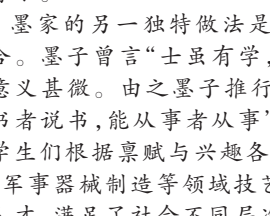 墨家的另一独特做法是
合。墨子曾言“士虽有学，
意义甚微。由之墨子推行
书者说书，能从事者从事”
学生们根据禀赋与兴趣各
军事器械制造等领域技艺
才，满足了社会不同层次